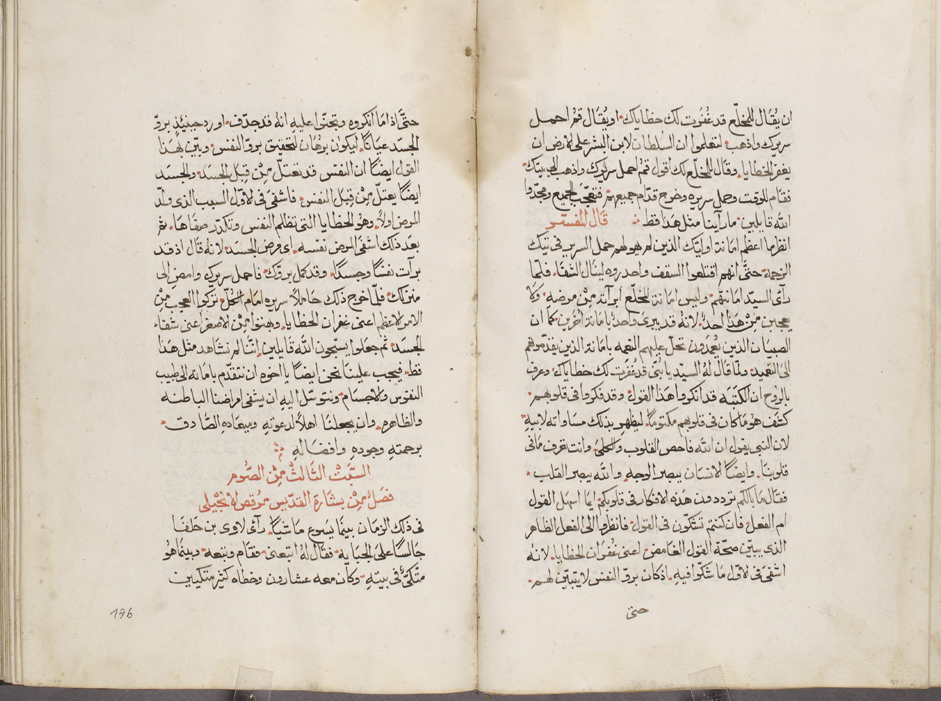 ان يقال للمخلّع قد غُفرت لك خطاياك او يُقال قُم احمل
سريرك واذهب لتعلموا ان السُلطان لابن البشر على الارض ان
يغفر الخطايا وقال للمخلّع لك اقول قُم احمل سريرك واذهب الى بيتك
فقام للوقت وحمل سريره وخرج قدّام جميعهم فتعجّب الجميع ومجّدوا
الله قايلين ما راينا مثل هذا قط قال المفسّر
انظر ما اعظم امانة اوليك الذين لم يهولهم حمل السرير في تيك
الزحمة حتّى انهم اقتلعوا السقف واحدروه لينال الشفاء فلمّا
رأى السيّد امانتهم وليس امانة المخلّع ابرأته من مرضه ولا
يعجبن من هذا احدٌ لانه قد يبرى واحدٌ بامانة اخرين كما ان
الصبيان الذين يعمدون تحل عليهم النعمه بامانة الذين يقدموهم
الى التعميد ولما قال له السيّد يا بنى قد غُفرت لك خطاياك وعرف
بالروح ان الكتبَه قد انكروا هذا القول وقد فكروا في قلوبهم
كشف هو ما كان في قلوبهم مكتومًا ليظهر بذلك مساواته لابيهِ
لان النبي يقول ان الله فاحص القلوب والكلى وانت تعرف ما في
قلوبنا وايضًا الانسان يبصر الوجه والله يبصر القلب
فقال ما بالكم ترددون هذه الافكار في قلوبكم ايما اسهل القول
ام الفعل فان كنتم تشكّون في القول فانظروا الى الفعل الظاهر
الذي يبيّن صحّة القول الغامض اعنى غفران الخطايا لانه
اشفى في الاول ما شكّوا فيهِ اذ كان برو النفس لا يتبيّن لهم
حتى
حتّى اذا ما انكروه وتجنّوا عليهِ انهُ قد جدّف اورد حينيذٍ برو
الجسد عيانًا ليكون برهان لتحقيق برو النفس وبيّن بهذا
القول ايضًا ان النفس قد تعتلّ من قِبل الجسد والجسد
ايضًا يعتلّ من قِبل النفس فاشفى في الاول السبب الذي ولّد
المرض اولاً وهو الخطايا التى تظلم النفس وتكدّر صفاها ثم
بعد ذلك اشفى المرض نفسه اي مرض الجسد لانه قال اذ قد
برأت نفسًا وجسدًا وقد كمل بروك فاحمل سريرك وامض الى
منزلك فلمّا خرج ذلك حاملاً سريره امام الكلّ تركوا العجب من
الامر الاعظم اعنى غفران الخطايا وبهتوا من الاصغر اعنى شفاء
الجسد ثم جعلوا يسبّحون الله قايلين اننا لم نشاهد مثل هذا
قط فيجب علينا نحن ايضًا يا اخوه ان نتقدّم بامانه الى طبيب
النفوس والاجسام ونتوسّل اليهِ ان يشفى امراضنا الباطنه
والظاهره وان يجعلنا اهلاً لدعوتهِ وميعادهِ الصّادق
برحمتهِ وجوده وافضالهِ
السبت الثالث من الصّوم
فصلٌ من بشارة القدّيس مرقص الانجيلى
في ذلك الزمان بينما يسوع ماشيًا رأى لاوى بن حلفا
جالسًا على الجبايه فقال لهُ اتبعنى فقام وتبعه وبينما هو
متكئ في بيتهِ وكان معه عشارون وخطاه كثير متكيين
176